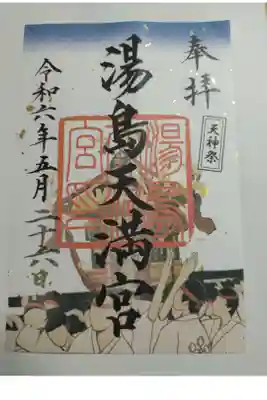 奉拝
天神祭
湯島天満宮
令和六年五月二十六日